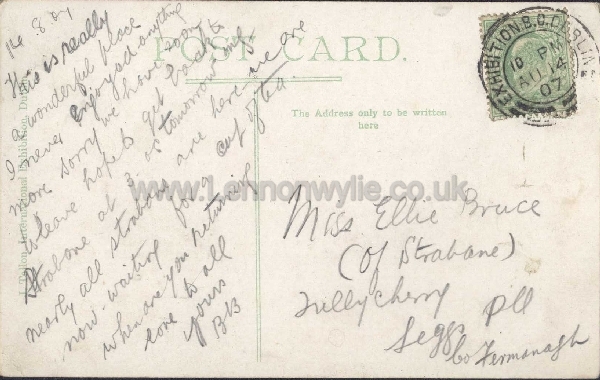 14 8 07
This is really
a wonderful place
I never enjoyed anything
more sorry we have soon
to leave hope to get back to
Strabane at 3 os tomorrow mg
nearly all strabane are here we are
now waiting for a cup of tea.
when are you returning
love to all
yours
BB
POST CARD.
The Address only to be written
here
EXHIBITION.B.O.DUBLIN
PM
AU 14
07
Miss Ellie Bruce
(Of Strabane)
Tullycherry
Leggs
Co Fermanagh
International Exhibition,
www.Lennonwylie.co.uk